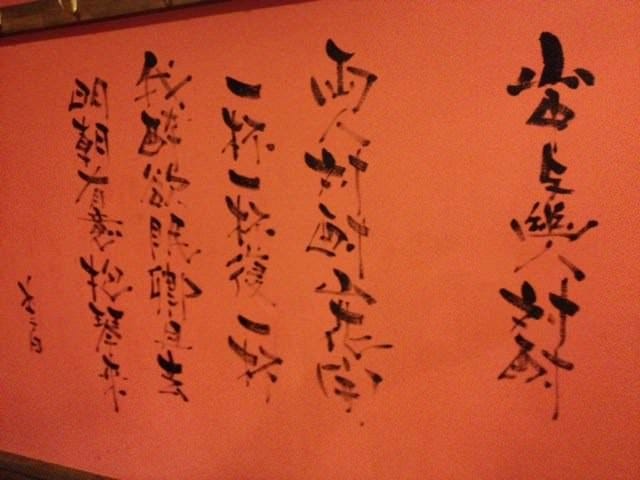 山中与幽人対酌
両人対酌山花開
一杯一杯復一杯
我酔欲眠卿且去
明朝有意抱琴来